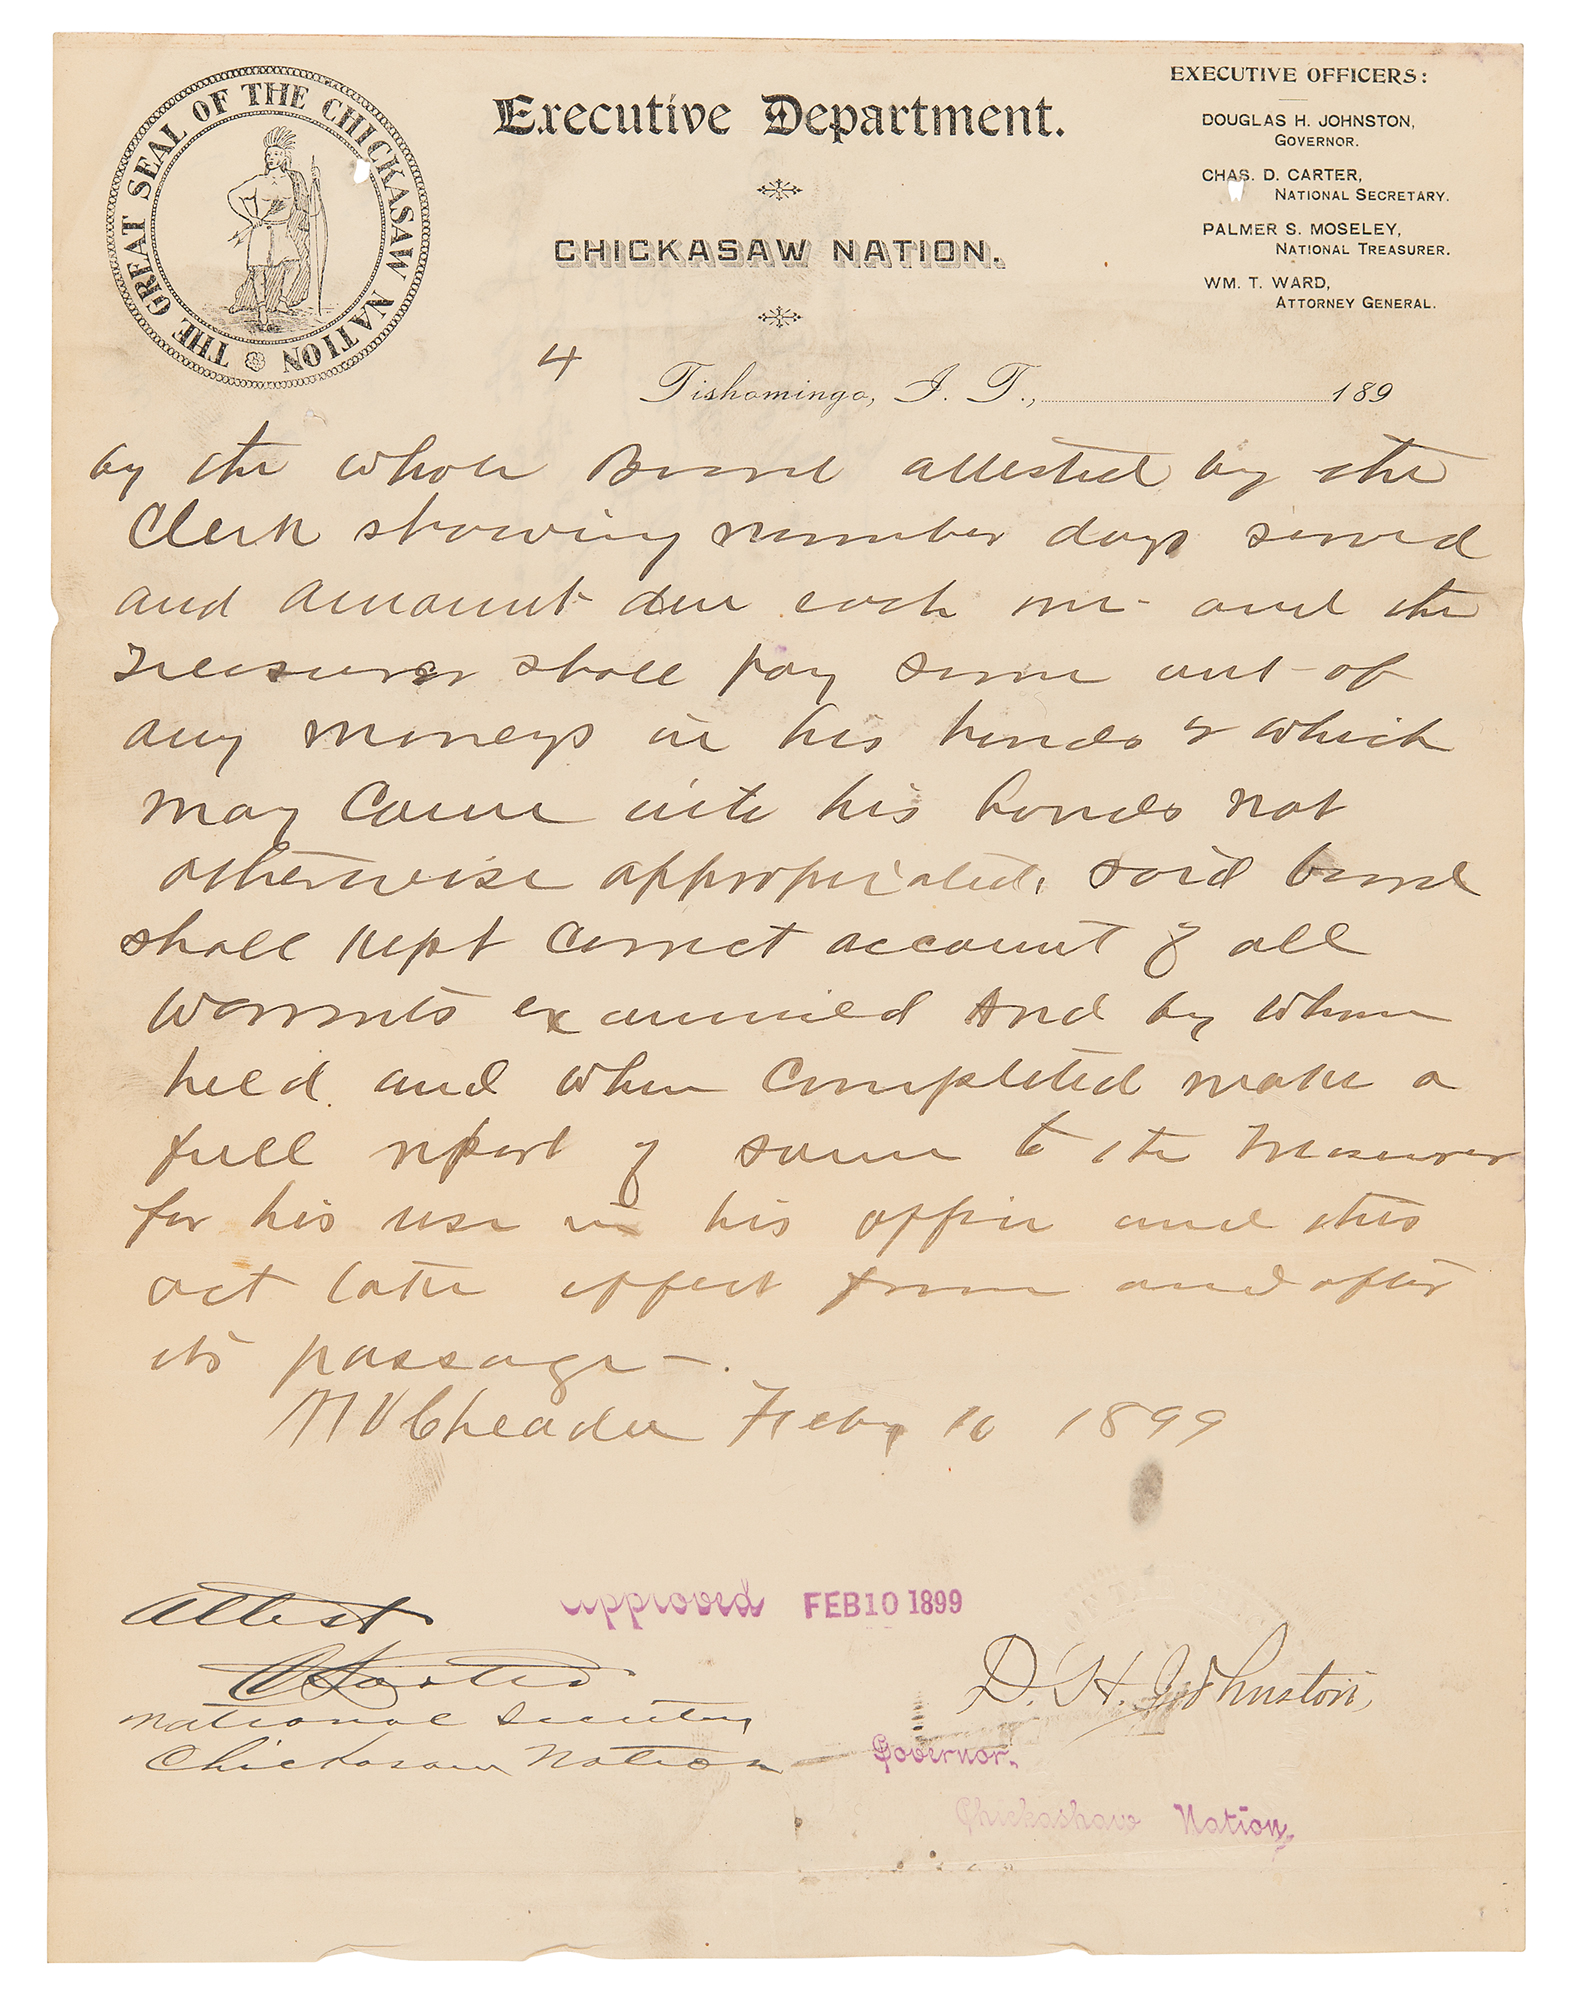 THE GREAT SEAL OF THE CHICKASAW NATION
Executive Department.
CHICKASAW NATION.
EXECUTIVE OFFICERS:
DOUGLAS H. JOHNSTON,
GOVERNOR.
CHAS. D. CARTER,
NATIONAL SECRETARY.
PALMER S. MOSELEY,
NATIONAL TREASURER.
WM. T. WARD,
ATTORNEY GENERAL.
4
Tishomingo, I. T., 189
by the whole Board attested by the
Clerk showing number days served
and amount due each one - and the
Treasurer shall pay same out of
any moneys in his hands or which
may come into his hands not
otherwise appropriated, said board
shall kept correct account of all
warrants examined And by whom
held and when completed make a
full report of same to the Treasurer
for his use in his office and this
act take effect from and after
its passage -.
M V Cheadle Feby 10 1899
Attest
Approved FEB 10 1899
D. H. Johnston,
National Secretary
Governor,
Chickasaw Nation
Chickashaw Nation,